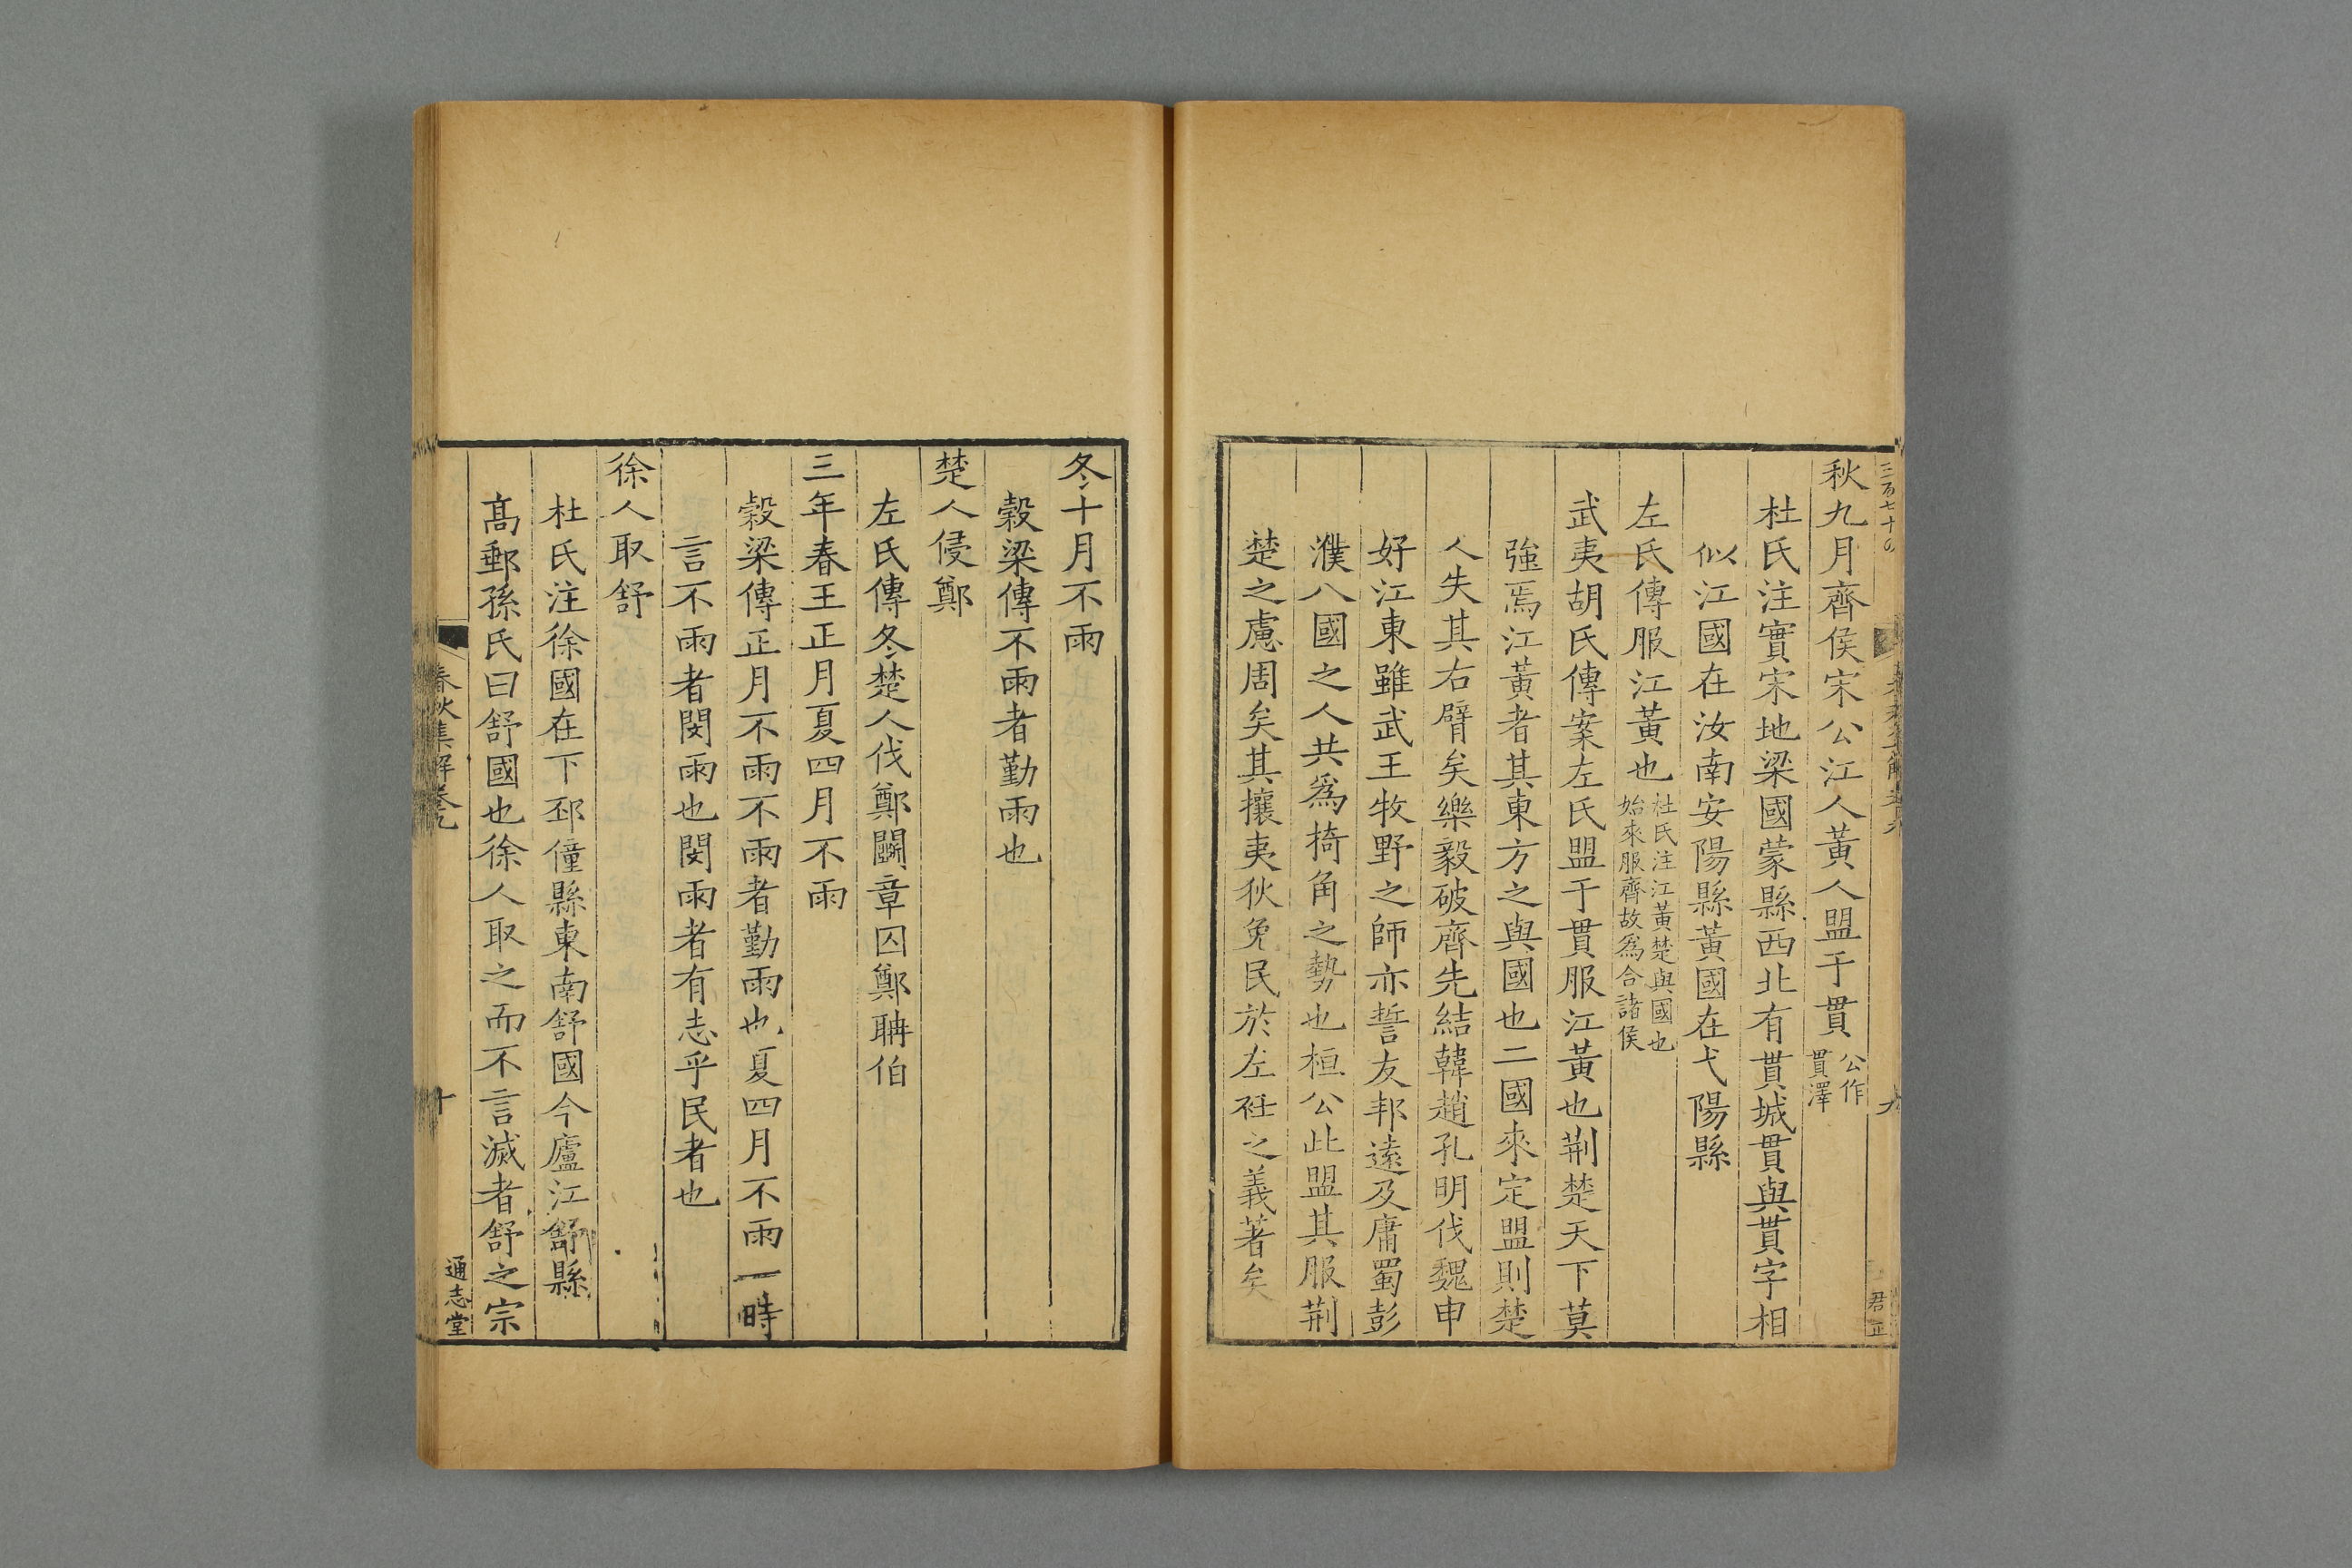 秋九月齊侯宋公江人黃人盟于貫公作貫澤
杜氏注實宋地梁國蒙縣西北有貰城貫與貰字相
似江國在汝南安陽縣黃國在弋陽縣
左氏傳服江黃也杜氏注江黃楚與國也始來服齊故爲合諸侯
武夷胡氏傳案左氏盟于貫服江黃也荆楚天下莫
強焉江黃者其東方之與國也二國來定盟則楚
人失其右臂矣樂毅破齊先結韓趙孔明伐魏申
好江東雖武王牧野之師亦誓友邦遠及庸蜀彭
濮八國之人共爲掎角之勢也桓公此盟其服荆
楚之慮周矣其攘夷狄免民於左衽之義著矣
冬十月不雨
穀梁傳不雨者勤雨也
楚人侵鄭
左氏傳冬楚人伐鄭鬭章囚鄭聃伯
三年春王正月夏四月不雨
穀梁傳正月不雨不雨者勤雨也夏四月不雨一時
言不雨者閔雨也閔雨者有志乎民者也
徐人取舒
杜氏注徐國在下邳僮縣東南舒國今廬江舒縣
高郵孫氏曰舒國也徐人取之而不言滅者舒之宗
春秋集解卷九
十
通志堂